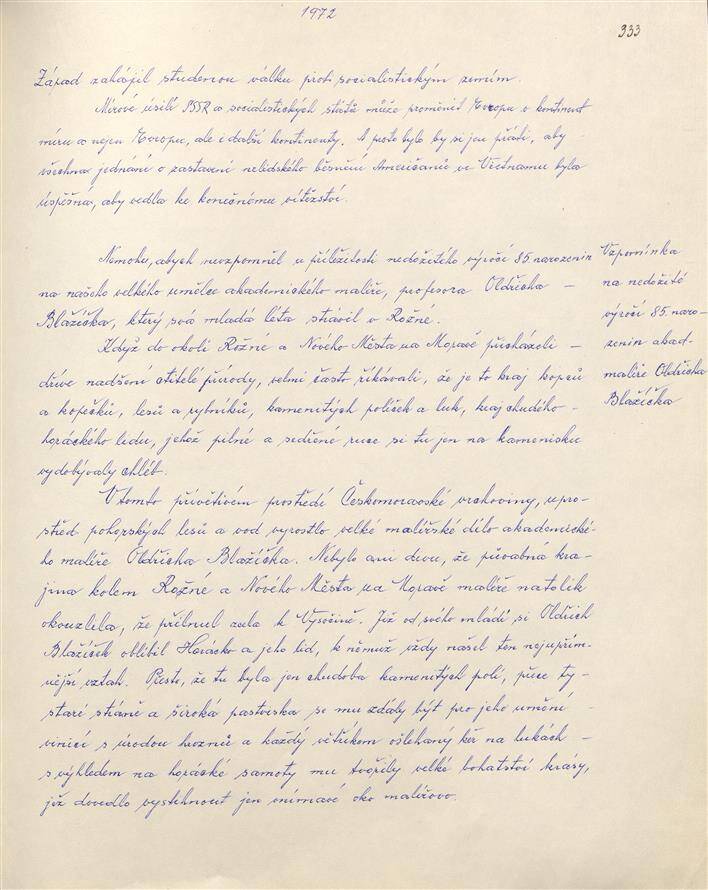 1972
333
Západ zahájil studenou válku proti socialistickým zemím.
Mírové úsilí SSSR a socialistických států může proměnit Evropu v kontinent
míru a nejen Evropu, ale i další kontinenty. A proto bylo by si jen přáti, aby
všechna jednání o zastavení nelidského běsnění Američanů ve Vietnamu byla
úspěšná, aby vedla ke konečnému vítězství.
Nemohu, abych nevzpomněl u příležitosti nedožitého výročí 85 narozenin
na našeho velkého umělce akademického malíře, profesora Oldřicha -
Blažíčka, který svá mladá léta strávil v Rožné.
Když do okolí Rožné a Nového Města na Moravě přicházeli -
dříve nadšení ctitelé přírody, velmi často říkávali, že je to kraj kopců
a kopečků, lesů a rybníků, kamenitých políček a luk, kraj chudého -
horáckého lidu, jehož pilné a sedřené ruce si tu jen na kamenisku
vydobývaly chléb.
V tomto přívětivém prostředí Českomoravské vrchoviny, upro-
střed pohorských lesů a vod vyrostlo velké malířské dílo akademické-
ho malíře Oldřicha Blažíčka. Nebylo ani divu, že půvabná kra-
jina kolem Rožné a Nového Města na Moravě malíře natolik
okouzlila, že přilnul zcela k Vysočině. Již od svého mládí si Oldřich
Blažíček oblíbil Horácko a jeho lid, k němuž vždy našel ten nejupřím-
nější vztah. Přesto, že tu byla jen chudoba kamenitých polí, přece ty -
staré stráně a široká pastviska se mu zdály být pro jeho umění
vinicí s úrodou hroznů a každý větříkem ošlehaný keř na lukách -
s výhledem na horácké samoty mu tvořily velké bohatství krásy,
již dovedlo vystihnout jen vnímavé oko malířovo.
Vzpomínka
na nedožité
výročí 85. naro-
zenin akad-
malíře Oldřicha
Blažíčka